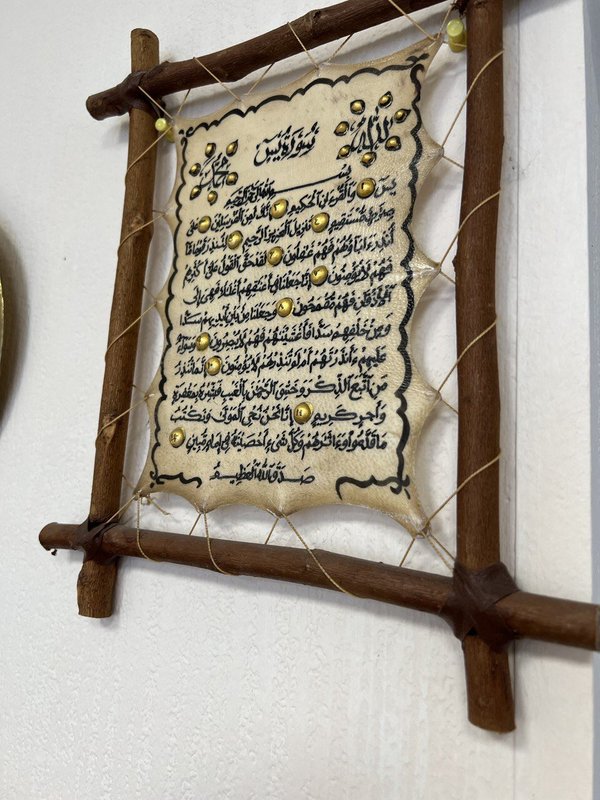 الله
سورة يس
محمد
بسم الله الرحمن الرحيم
يس والقرءان الحكيم إنك لمن المرسلين على
صراط مستقيم تنزيل العزيز الرحيم لتنذر قوما ما
أنذر ءاباؤهم فهم غافلون لقد حق القول على أكثرهم
فهم لا يؤمنون إنا جعلنا في أعناقهم أغلالا فهي إلى
الأذقان فهم مقمحون وجعلنا من بين أيديهم سدا
ومن خلفهم سدا فأغشيناهم فهم لا يبصرون وسواء
عليهم ءأنذرتهم أم لم تنذرهم لا يؤمنون إنما تنذر
من اتبع الذكر وخشي الرحمن بالغيب فبشره بمغفرة
وأجر كريم ١١ إنا نحن نحي الموتى ونكتب
ما قدموا وءاثارهم وكل شيء أحصيناه في إمام مبين ١٢
صدق الله العظيم